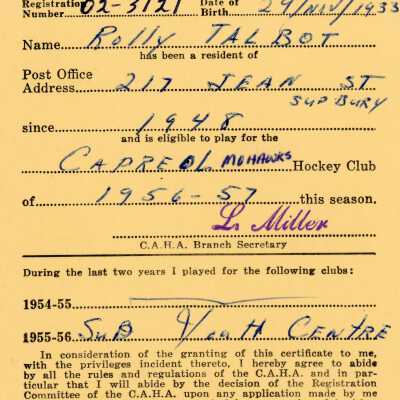 Registration Number 02-3121 Date of Birth 29/NOV/1933
Name Rolly TALBOT
has been a resident of
Post Office
Address 217 JEAN ST
SUDBURY
since 1948
and is eligible to play for the
CAPREOL MOHAWKS Hockey Club
of 1956-57 this season.
L. Miller
C.A.H.A. Branch Secretary
During the last two years I played for the following clubs:
1954-55
1955-56 SUB Youth CENTRE
In consideration of the granting of this certificate to me,
with the privileges incident thereto, I hereby agree to abide
by all the rules and regulations of the C.A.H.A. and in par-
ticular that I will abide by the decision of the Registration
Committee of the C.A.H.A. upon any application made by me